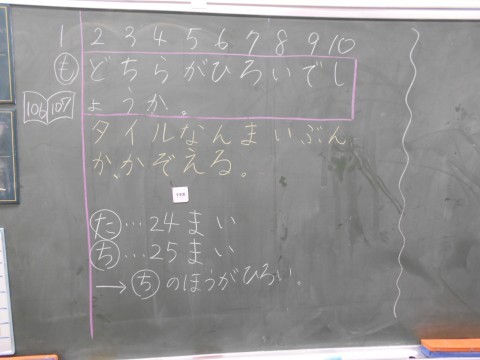 1 2 3 4 5 6 7 8 9 10
も どちらがひろいでし
ょうか。
106 107
タイルなんまいぶん
か、かぞえる。
た…24まい
ち…25まい
→ちのほうがひろい。